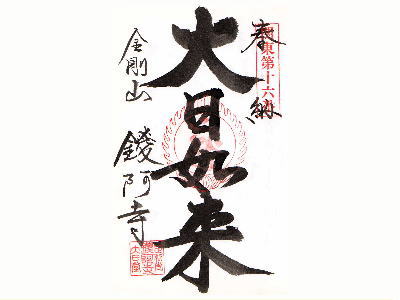 奉納
関東第十六番
大日如来
金剛山
鑁阿寺